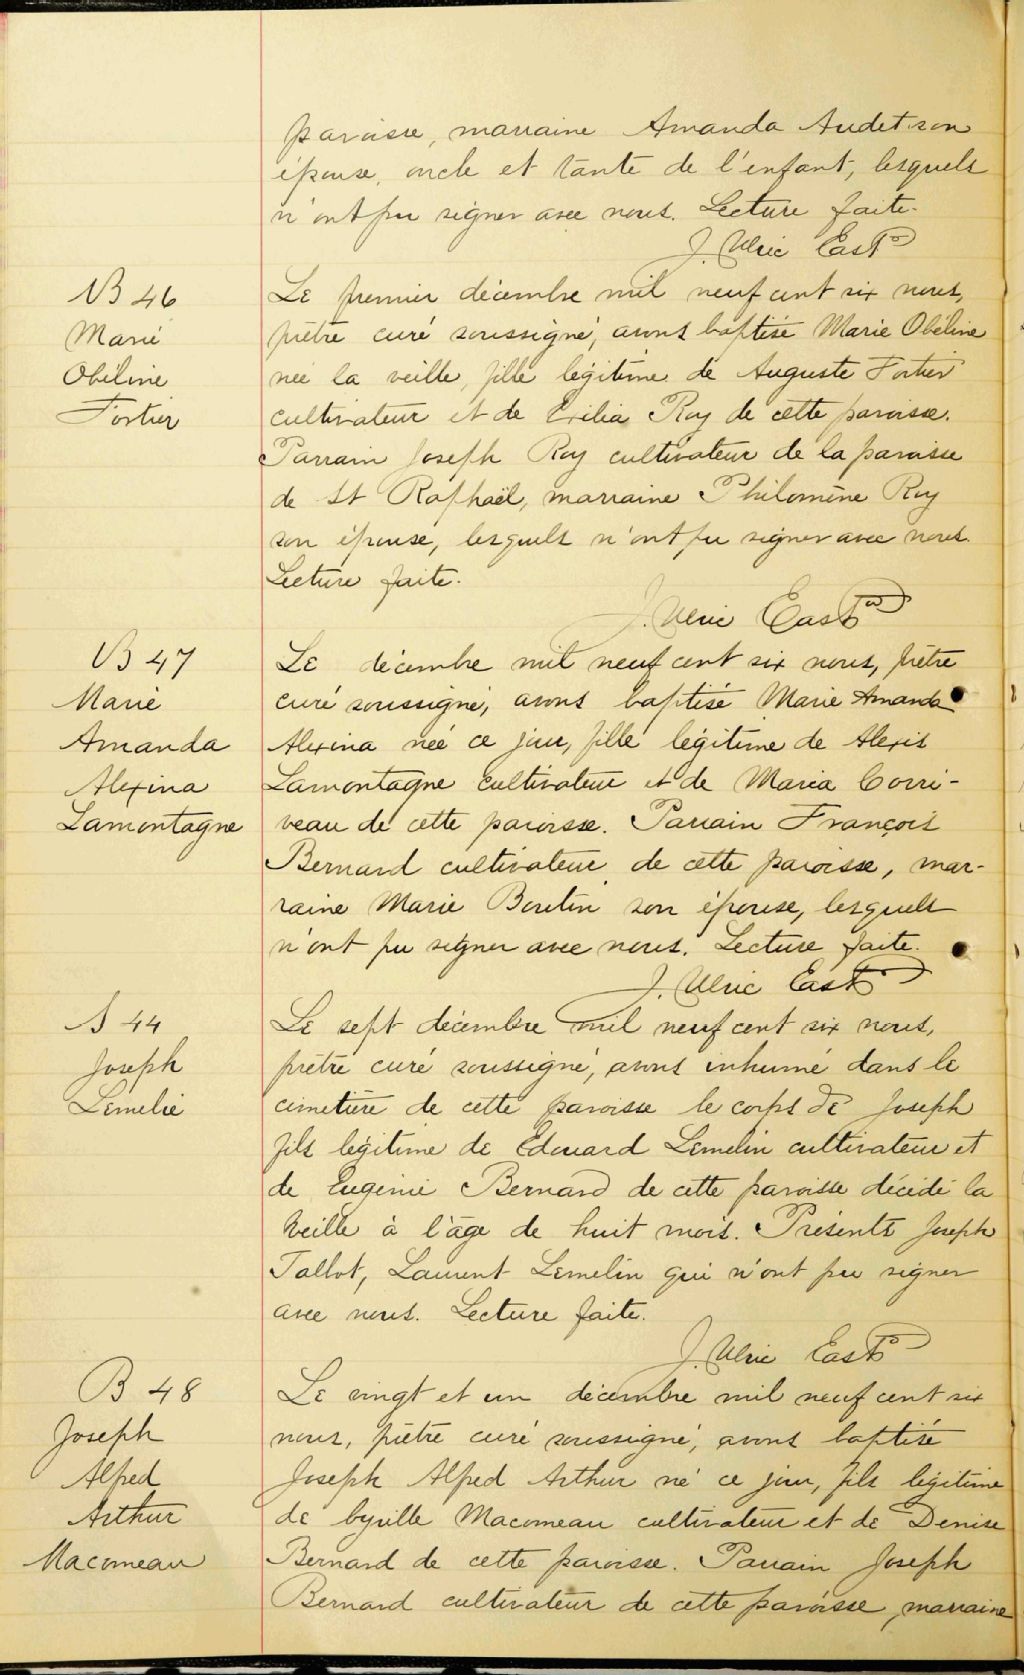 paroisse, marraine Amanda Audet son
épouse, oncle et tante de l'enfant, lesquels
n'ont pu signer avec nous. Lecture faite.
J. Ulric East
B 46
Marie
Obéline
Fortier
Le premier décembre mil neuf cent six nous,
prêtre curé soussigné, avons baptisé Marie Obéline
née la veille, fille légitime de Auguste Fortier
cultivateur et de Exilia Roy de cette paroisse.
Parrain Joseph Roy cultivateur de la paroisse
de St Raphaël, marraine Philomène Roy
son épouse, lesquels n'ont pu signer avec nous.
Lecture faite.
J. Ulric East
B 47
Marie
Amanda
Alexina
Lamontagne
Le décembre mil neuf cent six nous, prêtre
curé soussigné, avons baptisé Marie Amanda
Alexina née ce jour, fille légitime de Alexis
Lamontagne cultivateur et de Maria Corri-
veau de cette paroisse. Parrain François
Bernard cultivateur de cette paroisse, mar-
raine Marie Boutin son épouse, lesquels
n'ont pu signer avec nous. Lecture faite.
J. Ulric East
S 44
Joseph
Lemelie
Le sept décembre mil neuf cent six nous,
prêtre curé soussigné, avons inhumé dans le
cimetière de cette paroisse le corps de Joseph
fils légitime de Edouard Lemelin cultivateur et
de Eugénie Bernard de cette paroisse décédé la
veille à l'âge de huit mois. Présents Joseph
Tallot, Laurent Lemelin qui n'ont pu signer
avec nous. Lecture faite.
J. Ulric East
B 48
Joseph
Alfred
Arthur
Macomeau
Le vingt et un décembre mil neuf cent six
nous, prêtre curé soussigné, avons baptisé
Joseph Alfred Arthur né ce jour, fils légitime
de Cyrille Macomeau cultivateur et de Denise
Bernard de cette paroisse. Parrain Joseph
Bernard cultivateur de cette paroisse, marraine